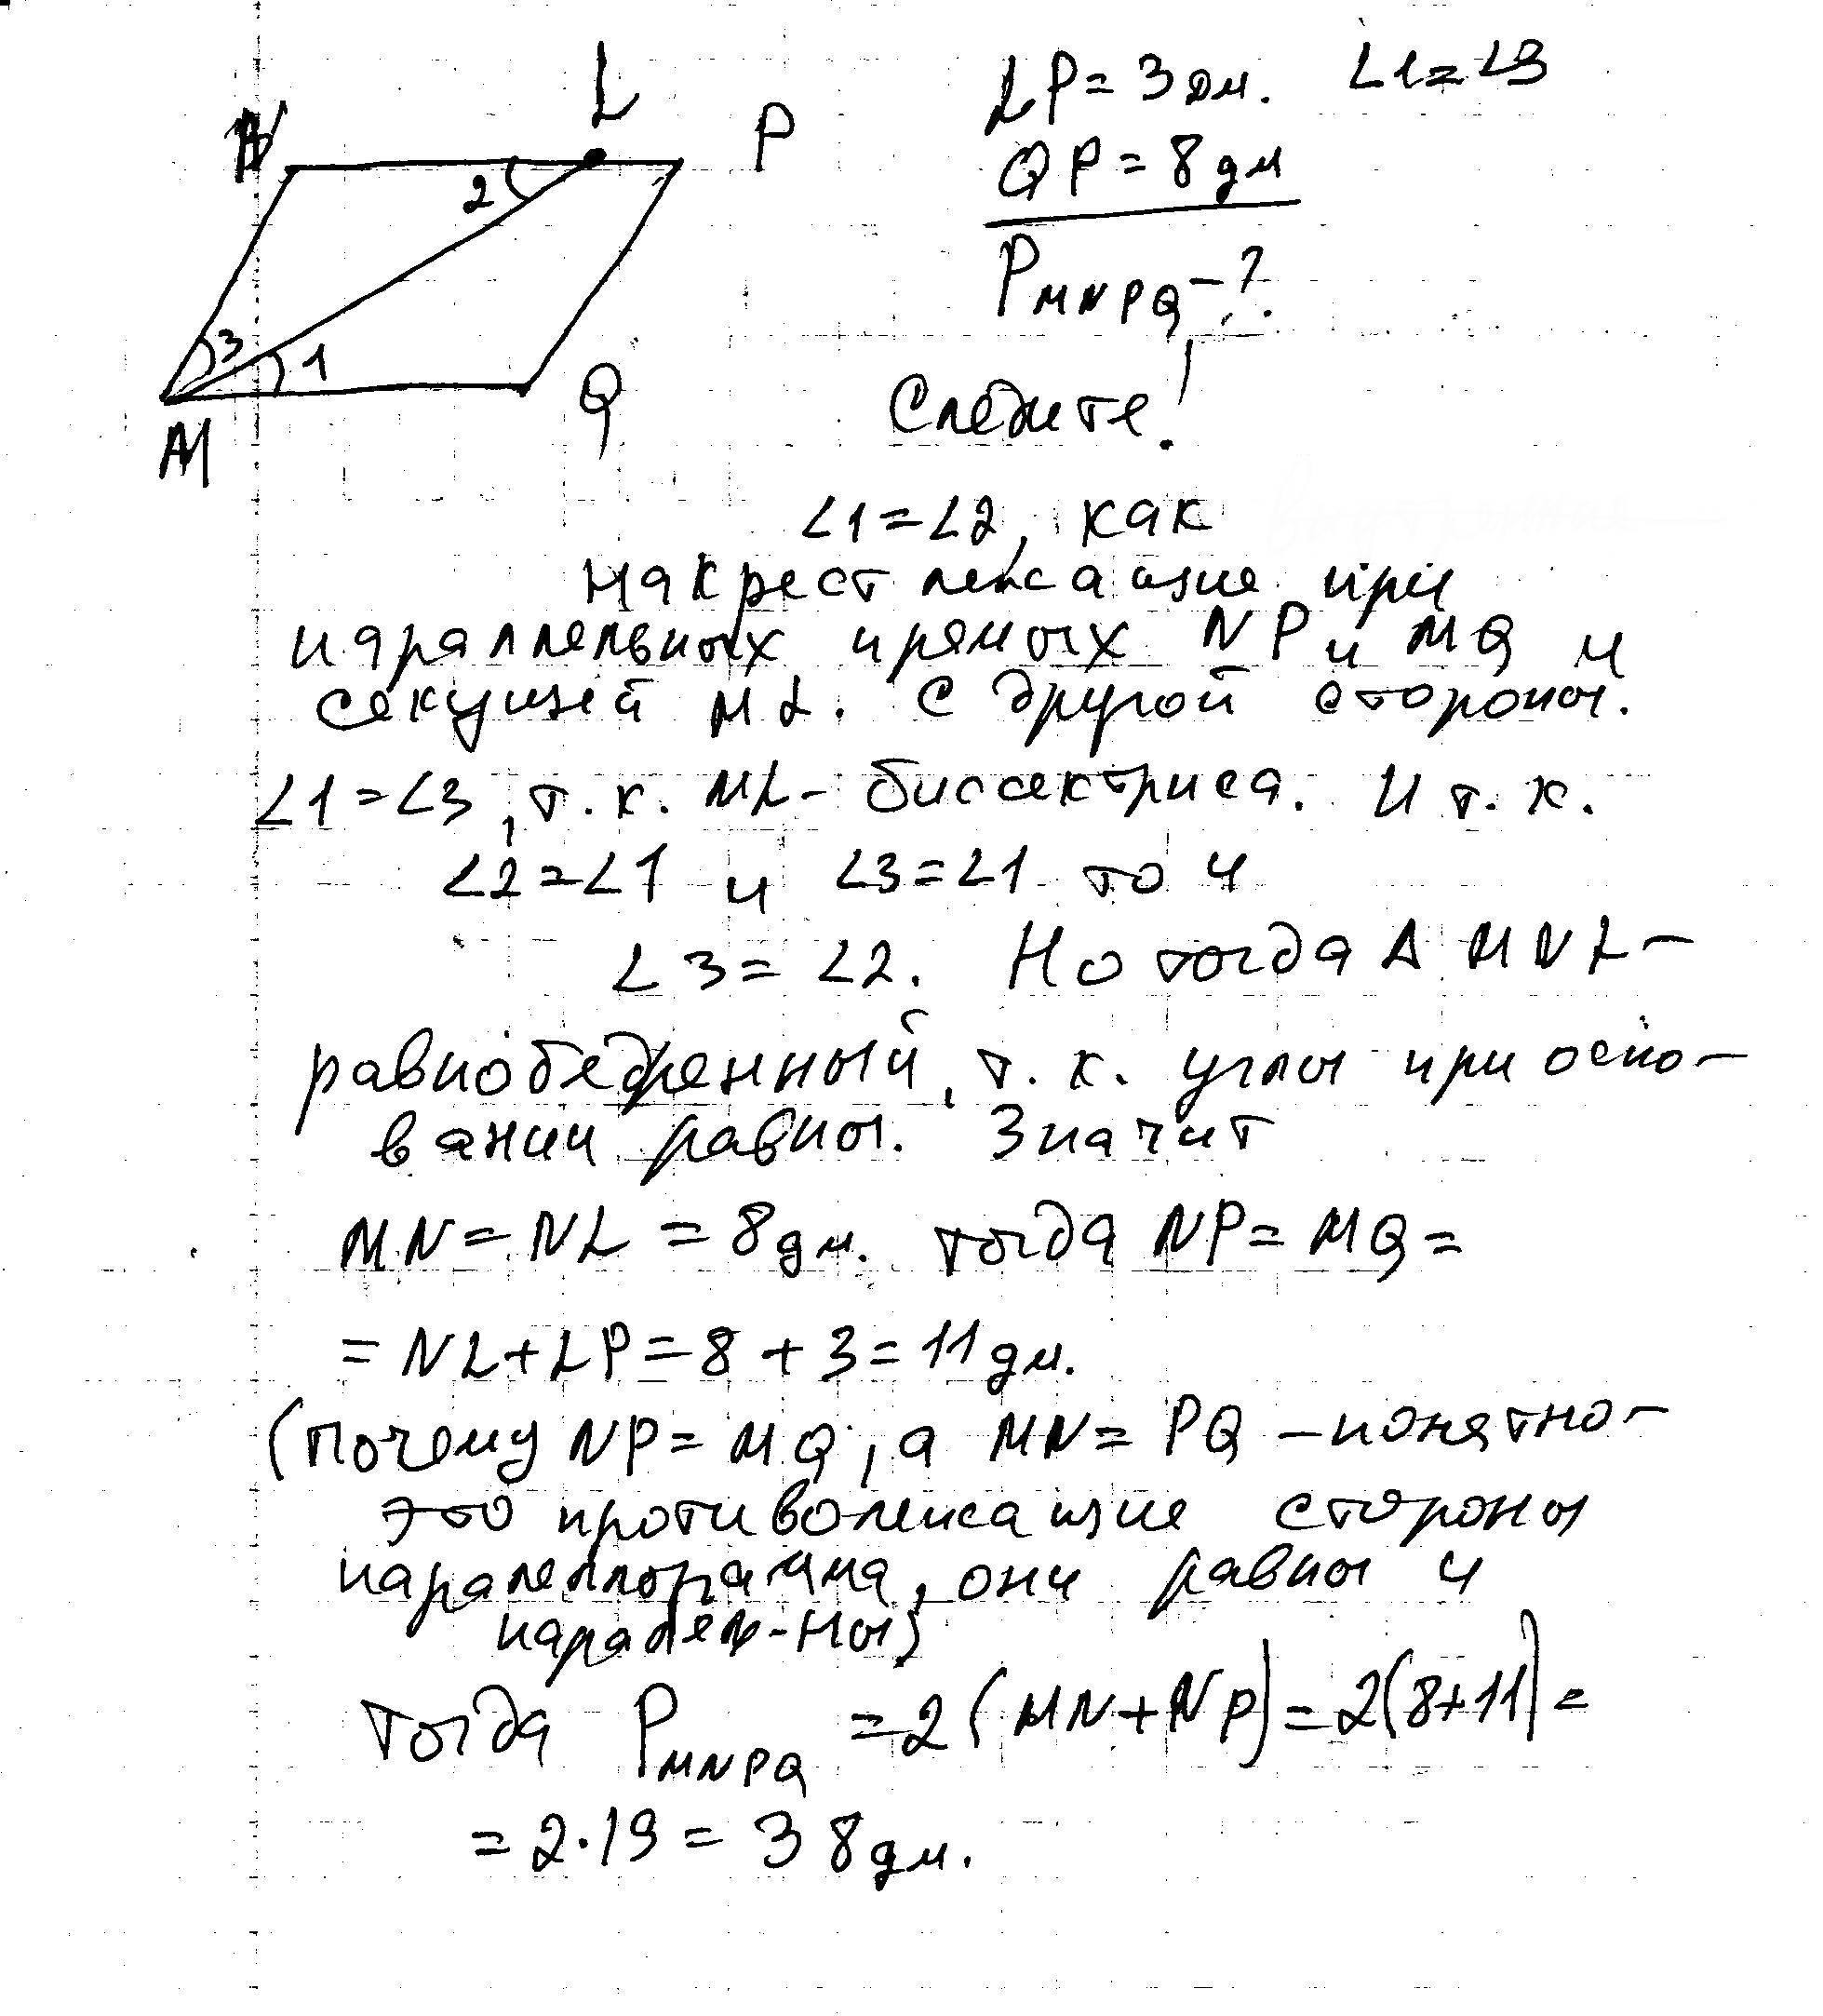 N L P
2
3 1
M Q
LP = 3 дм. ∠1=∠3
QP = 8 дм
P MNPQ - ?
Следите!
∠1=∠2, как
накрест лежащие при
параллельных прямых NP и MQ и
секущей ML. С другой стороны.
∠1=∠3, т.к. ML - биссектриса. И т.к.
∠2=∠1 и ∠3=∠1 то и
∠3=∠2. Но тогда Δ MNL -
равнобедренный, т.к. углы при осно-
вании равны. Значит
MN = NL = 8 дм. тогда NP = MQ =
= NL + LP = 8 + 3 = 11 дм.
(Почему NP = MQ, а MN = PQ - понятно -
это противолежащие стороны
паралеллограмма, они равны и
паралел-ны)
Тогда P MNPQ = 2(MN+NP) = 2(8+11) =
= 2·19 = 38 дм.